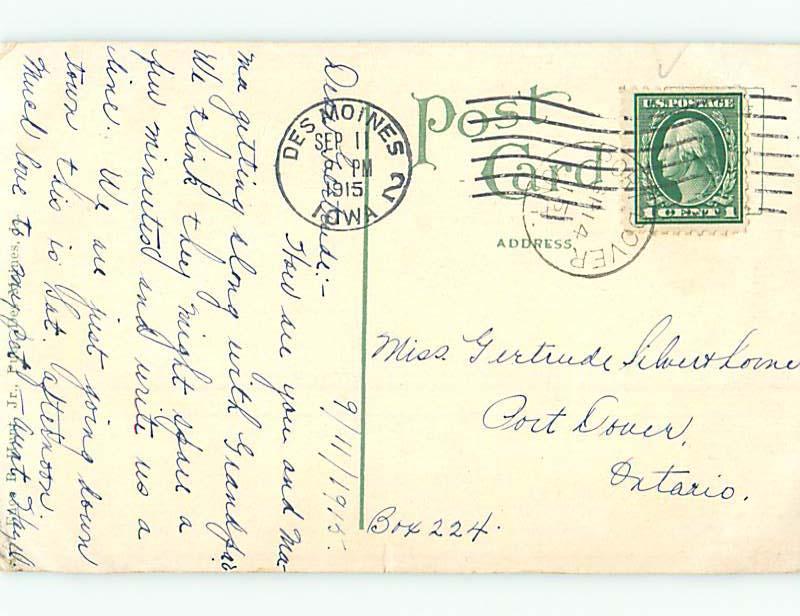 Post
Card
ADDRESS
U.S. POSTAGE
1 CENT 1
DES MOINES 2
SEP 11
6 PM
1915
IOWA
DOVER
14
Miss. Gertrude
Port Dover,
Ontario.
Box 224.
9/11/1915.
Dear Gertrude:-
How are you and Ma-
ma getting along with Grandpa's
We think they might spare a
few minutes and write us a
line. We are just going down
town this is Sat. afternoon.
Much love to my pet - Aunt